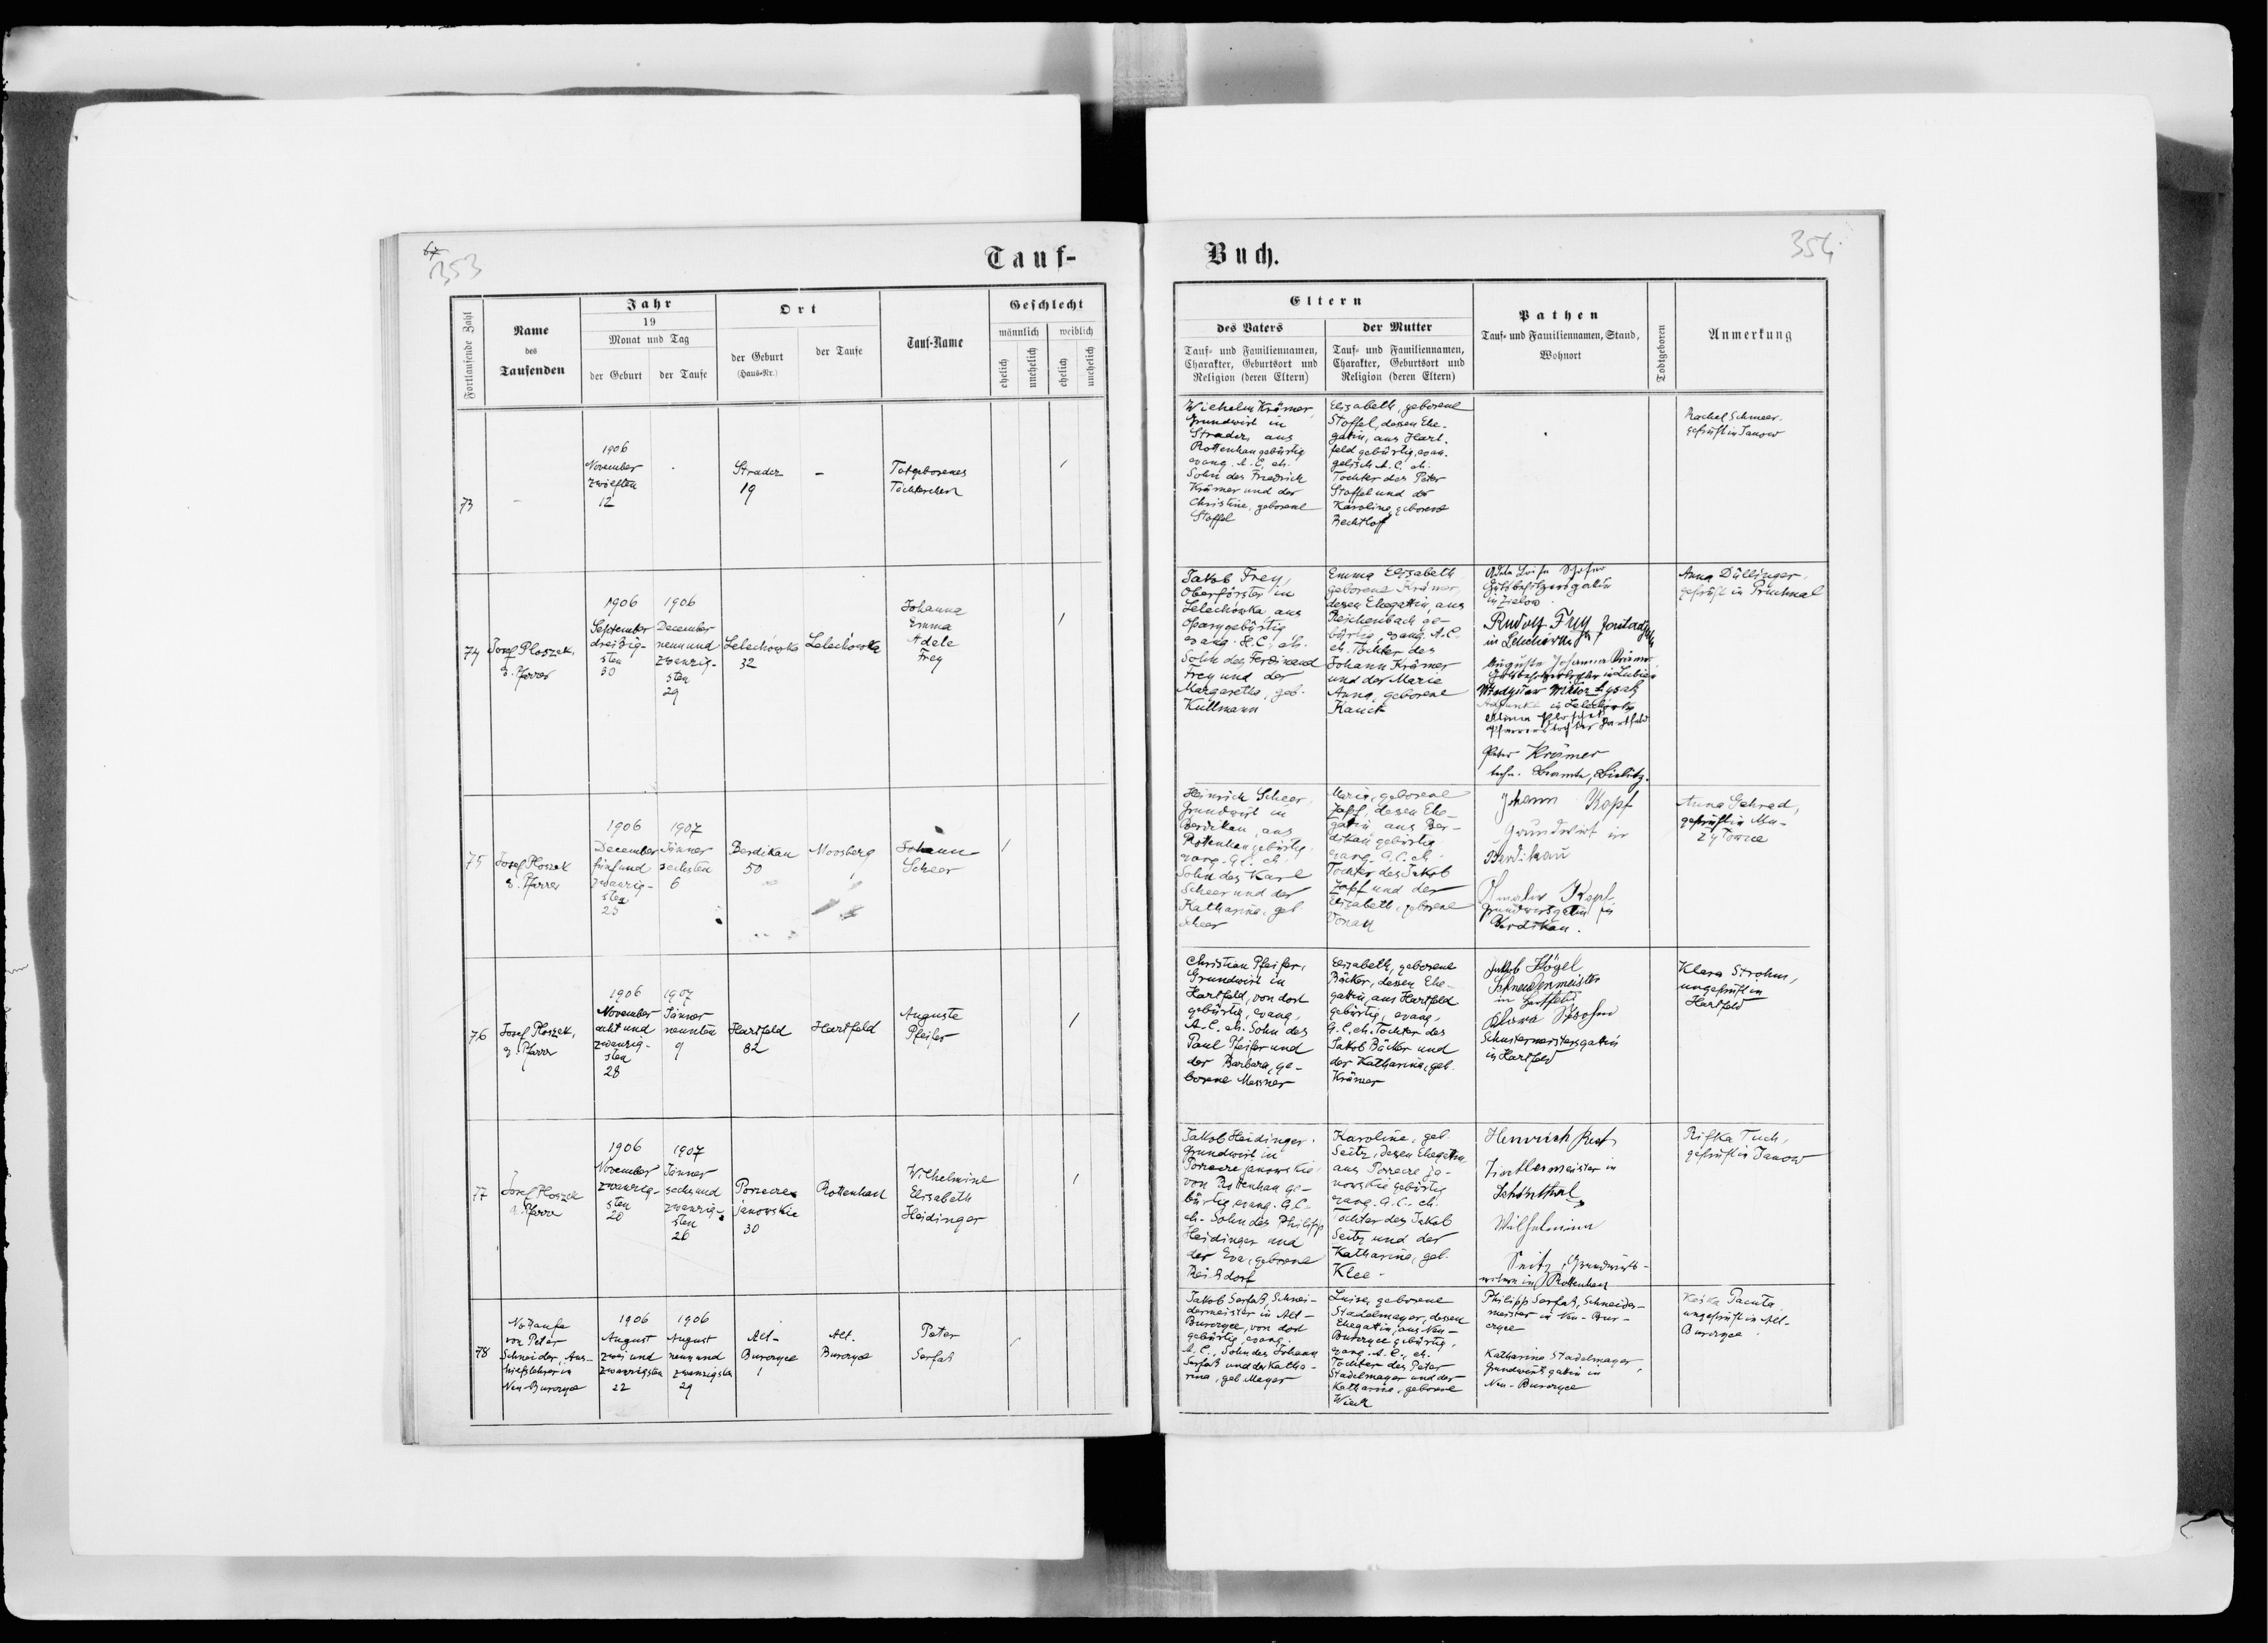 67
353
Tauf-
Fortlaufende Zahl
Name
des
Taufenden
Jahr
19
Monat und Tag
der Geburt
der Taufe
Ort
der Geburt
(Haus-Nr.)
der Taufe
Tauf-Name
Geschlecht
männlich
weiblich
ehelich
unehelich
ehelich
unehelich
73
-
1906
November
zwölften
12
Stradcz
19
-
Totgeborenes
Töchterchen
74
Josef Ploszek,
z. Pfarrer
1906
September
dreißig-
sten
30
1906
December
neunund
zwanzig-
sten
29
Lelechówka
32
Lelechówka
Johanna
Emma
Adele
Frey
75
Josef Ploszek
z. Pfarrer
1906
December
fünfund
zwanzig-
sten
25
1907
Jänner
sechsten
6
Berdikau
50
Moosberg
Johann
Scheer
76
Josef Ploszek,
z. Pfarrer
1906
November
acht und
zwanzig-
sten
28
1907
Jänner
neunten
9
Hartfeld
82
Hartfeld
Auguste
Pfeifer
77
Josef Ploszek
z. Pfarrer
1906
November
zwanzig-
sten
20
1907
Jänner
sechsund
zwanzig-
sten
26
Porzecze
janowskie
30
Rottenhan
Wilhelmine
Elisabeth
Heidinger
78
Nottaufe
von Peter
Schneider, Aus-
hilfslehrer in
Neu-Burczyce
1906
August
zwei und
zwanzigsten
22
1906
August
neunund
zwanzigsten
29
Alt-
Burczyce
1
Alt.
Burczyce
Peter
Serfaß
Buch.
354
Eltern
des Vaters
Tauf- und Familiennamen,
Charakter, Geburtsort und
Religion (deren Eltern)
der Mutter
Tauf- und Familiennamen,
Charakter, Geburtsort und
Religion (deren Eltern)
Pathen
Tauf- und Familiennamen, Stand,
Wohnort
Todtgeboren
Anmerkung
Wilhelm Krämer,
Grundwirt in
Stradcz, aus
Rottenhan gebürtig
evang. A. C, eh.
Sohn des Friedrich
Krämer und der
Christine, geborene
Stoffel
Elisabeth, geborene
Stoffel, dessen Ehe-
gatin, aus Hart-
feld gebürtig, evan-
gelisch A. C. eh.
Tochter des Peter
Stoffel und der
Karoline, geborene
Bechtloff
Rachel Schmeer,
geprüft in Janow
Jakob Frey,
Oberförster in
Lelechówka, aus
Oparygebürtig
evang. H. C, eh.
Sohn des Ferdinand
Frey und der
Margaretha, geb.
Küllmann
Emma Elisabeth
geborene Krämer,
dessen Ehegattin, aus
Reichenbach ge-
bürtig, evang. A. C.
eh. Tochter des
Johann Krämer
und der Marie
Anna, geborene
Kauck
Gutsbesitzersgatin
Rudolf Frey
in Lelechówka
Auguste Johanna
Peter Krämer
Anna Düllinger,
geprüft in
Heinrich Scheer,
Grundwirt in
Berdikau, aus
Rottenhan gebürtig,
evang. A. C. eh.
Sohn des Karl
Scheer und der
Katharina, geb
Scheer
Maria, geborene
Zapf, dessen Ehe-
gatin aus Ber-
dikau gebürtig
evang. A. C. eh.
Tochter des Jakob
Zapf und der
Elisabeth, geborene
Johann Kopf
Grundwirt in
Berdikau
Kopf
Grundwirtsgatin in
Berdikau.
Anna Gehrad,
geprüft in Mu-
zyłowice
Christian Pfeifer,
Grundwirt in
Hartfeld, von dort
gebürtig, evang.
A. C. eh. Sohn des
Paul Pfeifer und
der Barbara, ge-
borene Messner
Elisabeth, geborene
Bäcker, dessen Ehe-
gattin, aus Hartfeld
gebürtig, evang.
A. C, eh. Tochter des
Jakob Bäcker und
der Katharina, geb.
Krämer
Jakob Högel
Schneidermeister
in Hartfeld
Klara Strohm
Schustermeistersgatin
in Hartfeld
Klara Strohm,
ungeprüft in
Hartfeld
Jakob Heidinger,
Grundwirt in
Porzecze janowskie,
von Rottenhan ge-
bürtig evang. A. C.
eh. Sohn des Philipp
Heidinger und
der Eva, geborene
Reisdorf
Karoline, geb
Seitz, dessen Ehegattin
aus Porzecze ja-
nowskie gebürtig
evang. A. C. eh.
Tochter des Jakob
Seitz und der
Katharina, geb.
Klee.
Heinrich
Tischlermeister in
Schönthal
Wilhelmina
Seitz, Grundwirts-
witwe in Rottenhan
Rifka Tuch,
geprüft in Janow
Jakob Serfaß, Schnei-
dermeister in Alt-
Burczyce, von dort
gebürtig, evang.
A. C., Sohn des Johann
Serfaß und der Katha-
rina, geb Mayer
Luise, geborene
Stadelmayer, dessen
Ehegattin, aus Neu-
Burczyce gebürtig,
evang. A. C., eh.
Tochter des Peter
Stadelmayer und der
Katharina, geborene
Philipp Serfaß, Schneider-
meister in Neu-Bur-
czyce
Katharina Stadelmayer,
Grundwirtsgatin in
Neu-Burczyce
Kaska Pacuta
ungeprüft in Alt-
Burczyce.